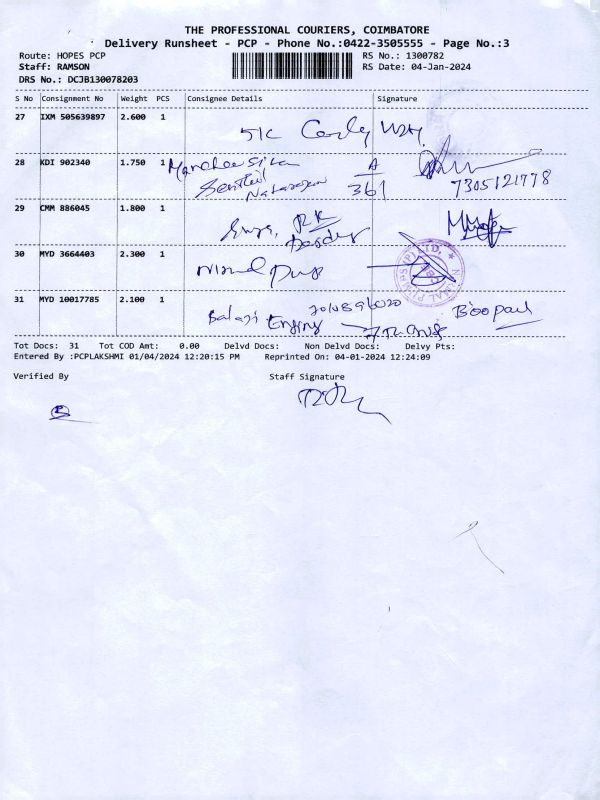 THE PROFESSIONAL COURIERS, COIMBATORE
Delivery Runsheet - PCP - Phone No.:0422-3505555 - Page No.:3
Route: HOPES PCP RS No.: 1300782
Staff: RAMSON RS Date: 04-Jan-2024
DRS No.: DCJB130078203
S No Consignment No Weight PCS Consignee Details Signature
27 IXM 505639897 2.600 1
28 KDI 902340 1.750 1
Senthil A
Natarajan 361 7305121778
29 CMM 886045 1.800 1
30 MYD 3664403 2.300 1
31 MYD 10017785 2.100 1
Balaji
Tot Docs: 31 Tot COD Amt: 0.00 Delvd Docs: Non Delvd Docs: Delvy Pts:
Entered By :PCPLAKSHMI 01/04/2024 12:20:15 PM Reprinted On: 04-01-2024 12:24:09
Verified By Staff Signature